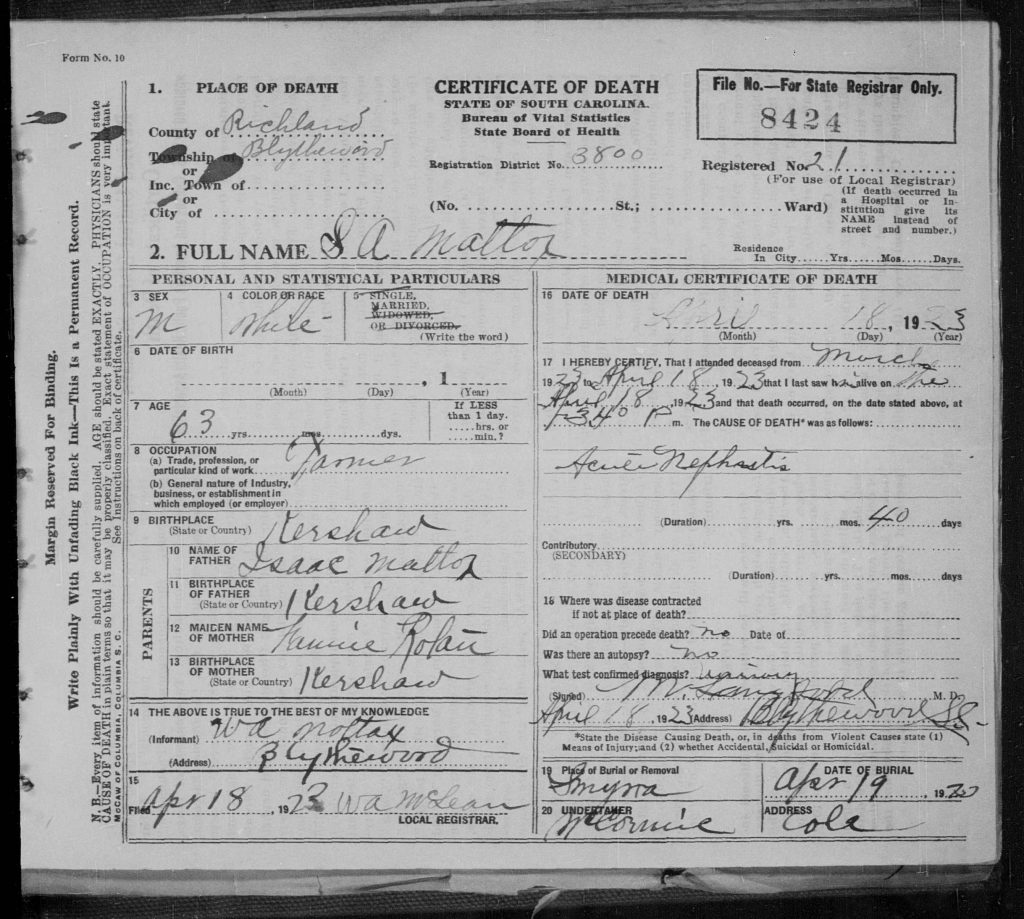 Form No. 10
1. PLACE OF DEATH
County of Richland
Township of Blythewood
or
Inc. Town of
or
City of
CERTIFICATE OF DEATH
STATE OF SOUTH CAROLINA.
Bureau of Vital Statistics
State Board of Health
Registration District No. 3800
(No. St.; Ward)
File No.—For State Registrar Only.
8424
Registered No. 21
(For use of Local Registrar)
(If death occurred in
a Hospital or In-
stitution give its
NAME instead of
street and number.)
2. FULL NAME A Mattox
Residence
In City Yrs. Mos. Days.
PERSONAL AND STATISTICAL PARTICULARS
3 SEX
M
4 COLOR OR RACE
White
5 SINGLE,
MARRIED,
WIDOWED,
OR DIVORCED.
(Write the word)
6 DATE OF BIRTH
, 1
(Month) (Day) (Year)
7 AGE
63 yrs. mos. dys.
If LESS
than 1 day.
hrs. or
min.?
8 OCCUPATION
(a) Trade, profession, or
particular kind of work Farmer
(b) General nature of Industry,
business, or establishment in
which employed (or employer)
9 BIRTHPLACE
(State or Country) Kershaw
PARENTS
10 NAME OF
FATHER Isaac Mattox
11 BIRTHPLACE
OF FATHER
(State or Country) Kershaw
12 MAIDEN NAME
OF MOTHER
13 BIRTHPLACE
OF MOTHER
(State or Country) Kershaw
14 THE ABOVE IS TRUE TO THE BEST OF MY KNOWLEDGE
(Informant) W A Mottox
(Address) Blythewood
15
Filed Apr 18 1923 W A McLean
LOCAL REGISTRAR.
MEDICAL CERTIFICATE OF DEATH
16 DATE OF DEATH
April 18, 1923
(Month) (Day) (Year)
17 I HEREBY CERTIFY, That I attended deceased from March
1923 to April 18, 1923 that I last saw alive on the
April 18, 1923 and that death occurred, on the date stated above, at
P m. The CAUSE OF DEATH* was as follows:
Acute Nephritis
(Duration) yrs. mos. 40 days
Contributory
(SECONDARY)
(Duration) yrs. mos. days
18 Where was disease contracted
if not at place of death?
Did an operation precede death? no Date of
Was there an autopsy? no
What test confirmed diagnosis?
(Signed) M. D.
April 18, 1923 (Address) Blythewood
*State the Disease Causing Death, or, in deaths from Violent Causes state (1)
Means of Injury; and (2) whether Accidental, Suicidal or Homicidal.
19 Place of Burial or Removal
Smyrna
DATE OF BURIAL
Apr 19 19
20 UNDERTAKER
ADDRESS
Cola
Margin Reserved For Binding.
Write Plainly With Unfading Black Ink—This Is a Permanent Record.
N. B.—Every item of information should be carefully supplied. AGE should be stated EXACTLY. PHYSICIANS should state
CAUSE OF DEATH in plain terms so that it may be properly classified. Exact statement of OCCUPATION is very important.
See Instructions on back of certificate.
McCAW OF COLUMBIA, COLUMBIA S. C.